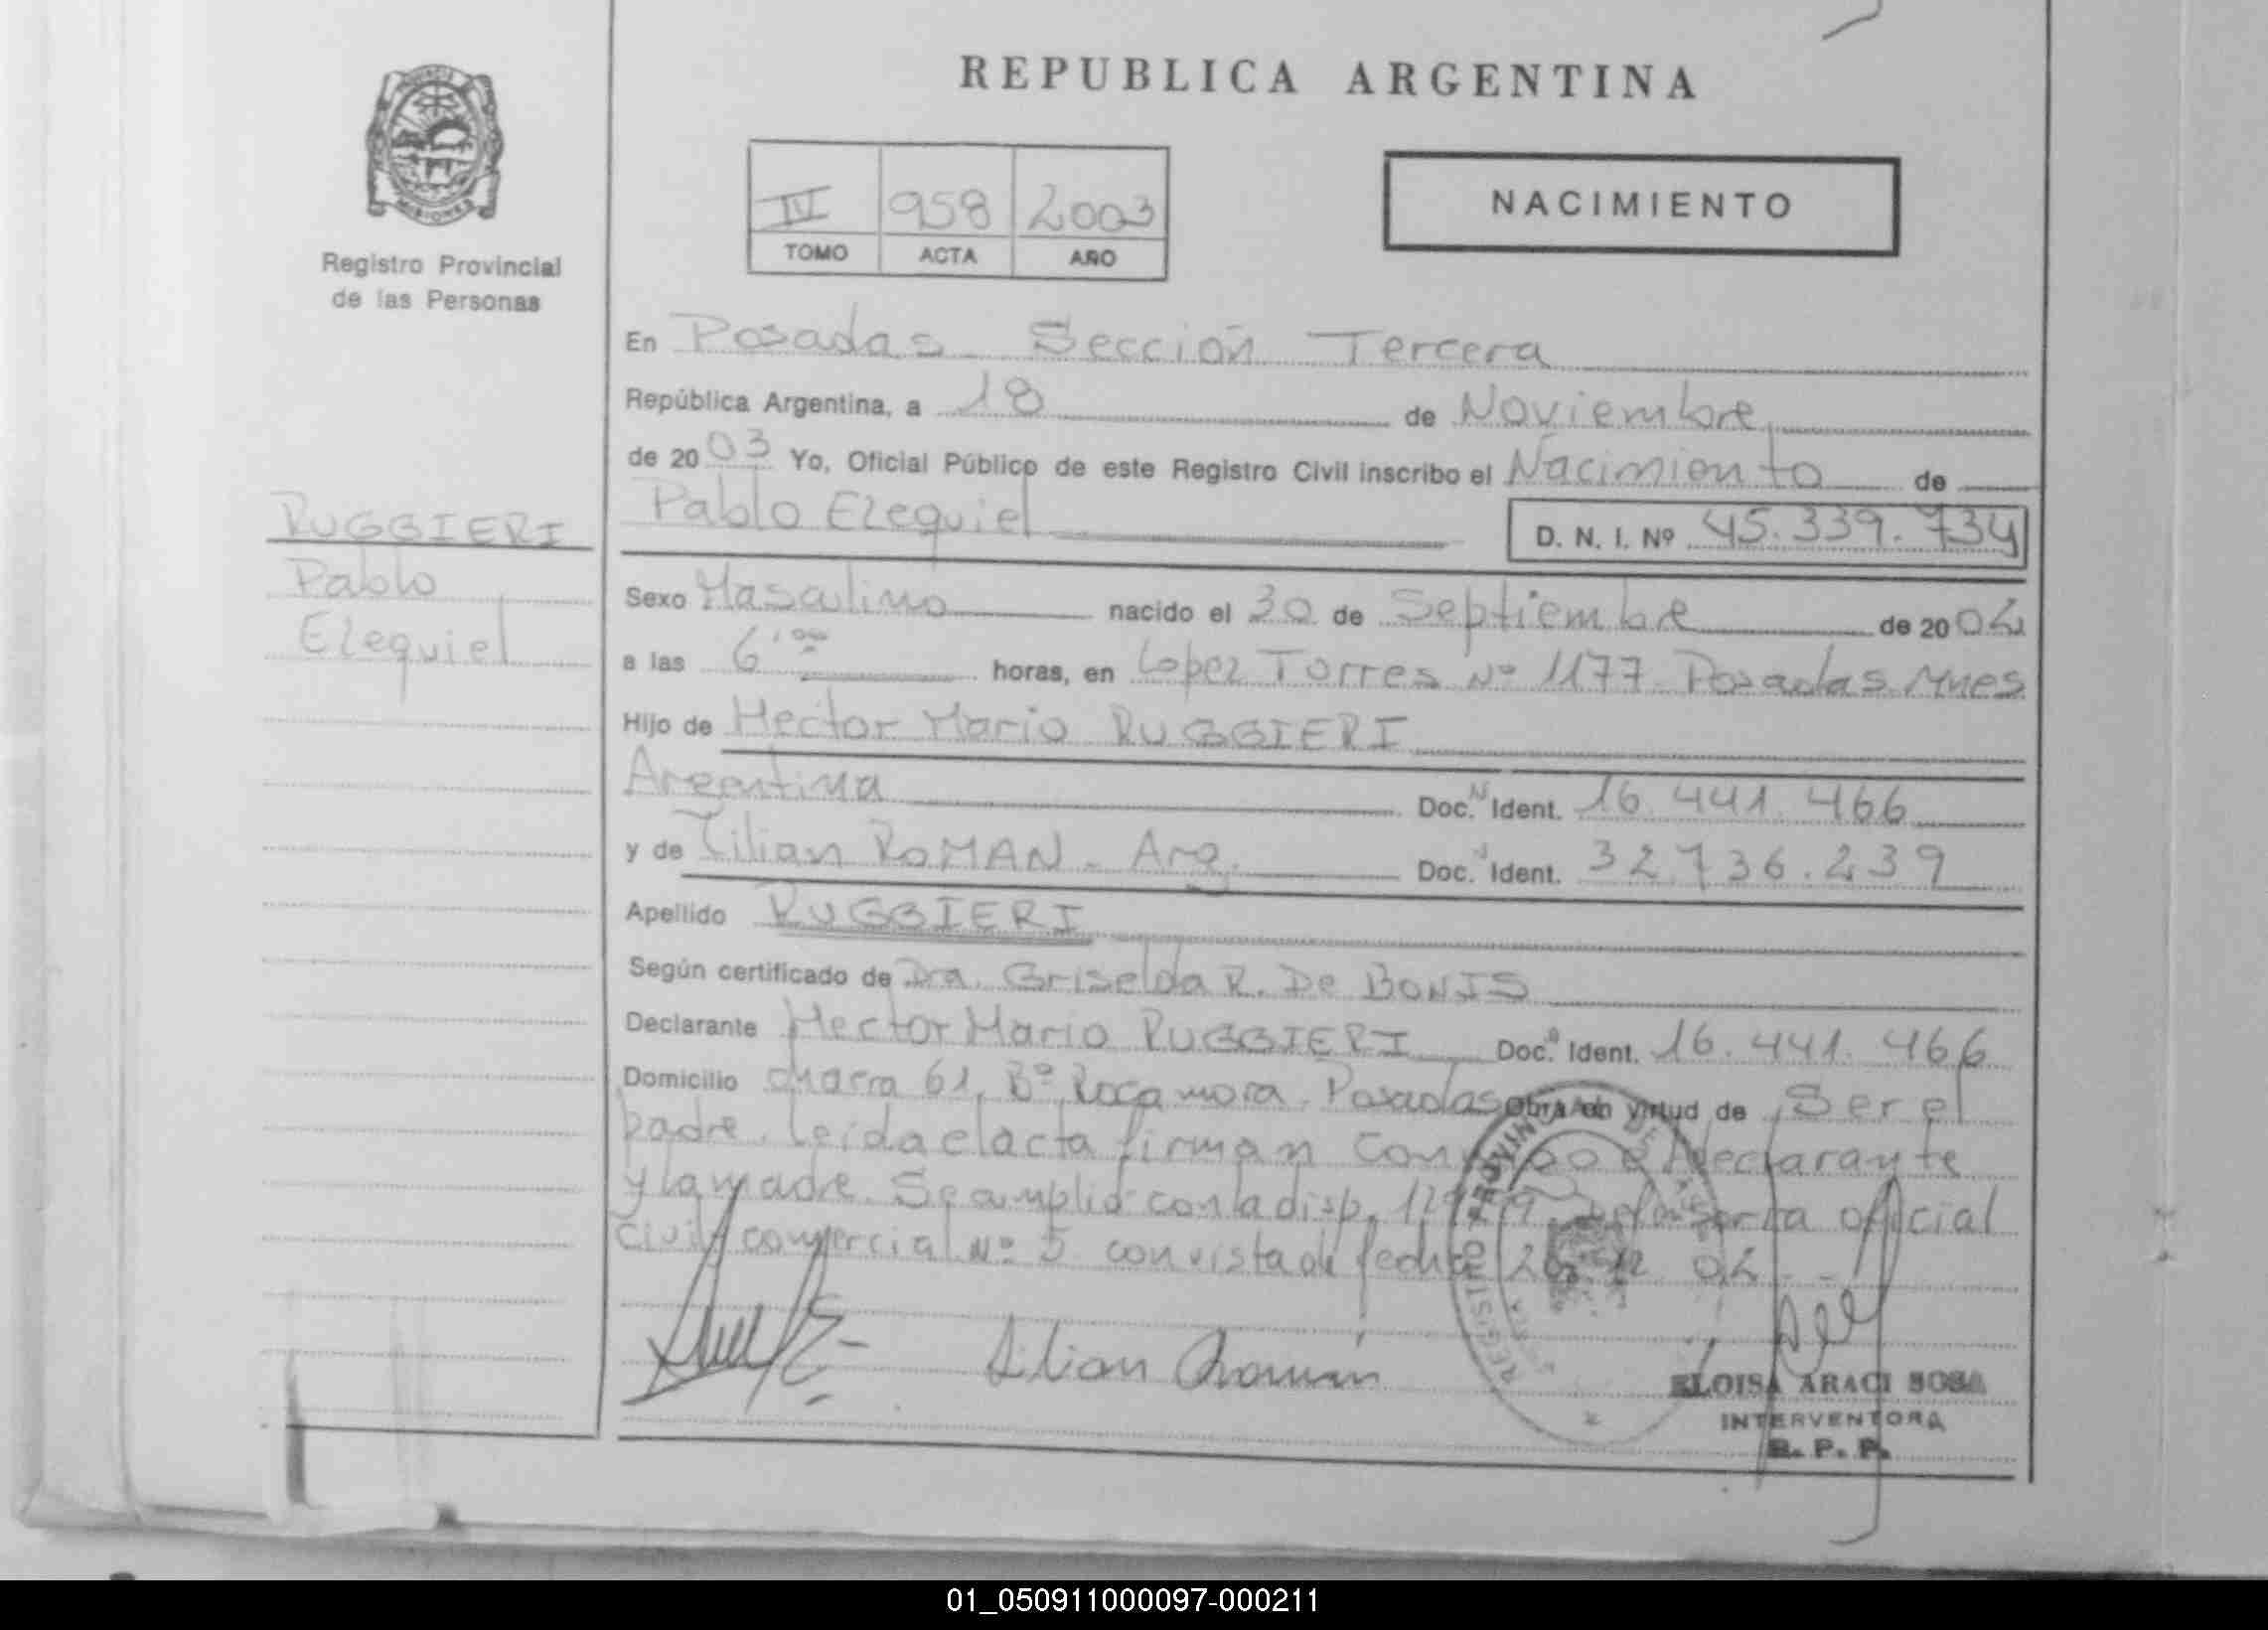 REPUBLICA ARGENTINA
MISIONES
Registro Provincial
de las Personas
IV 958 2003
TOMO ACTA AÑO
NACIMIENTO
En Posadas Sección Tercera
República Argentina, a 18 de Noviembre
de 20 03 Yo, Oficial Público de este Registro Civil inscribo el Nacimiento de
Pablo Ezequiel D. N. I. Nº 45.339.734
RUGGIERI
Pablo
Ezequiel
Sexo Masculino nacido el 30 de Septiembre de 20 02
a las 6'00 horas, en Lopez Torres Nº 1177 Posadas Mnes
Hijo de Hector Mario RUGGIERI
Argentina Doc. N Ident. 16.441.466
y de Lilian ROMAN - Arg. Doc. Ident. 32.736.239
Apellido RUGGIERI
Según certificado de Dra. Griselda R. De BONIS
Declarante Hector Mario RUGGIERI Doc. Ident. 16.441.466
Domicilio chacra 61, Bº Rocamora Posadas Obra en virtud de Ser el
padre. Leida el acta firman conmigo el declarante
y la madre. Se amplió con la disp. oficial
civil y comercial Nº 5 con vista de fecha 26 12 02 --
Lilian Roman
REGISTRO PROVINCIAL DE LAS
ELOISA ARACI SOSA
INTERVENTORA
R. P. P.
01_050911000097-000211